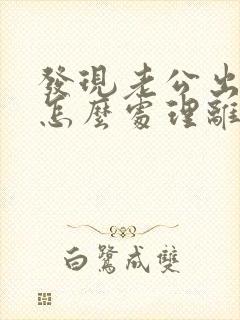 發現老公出
怎麼處理離
白鷺成雙